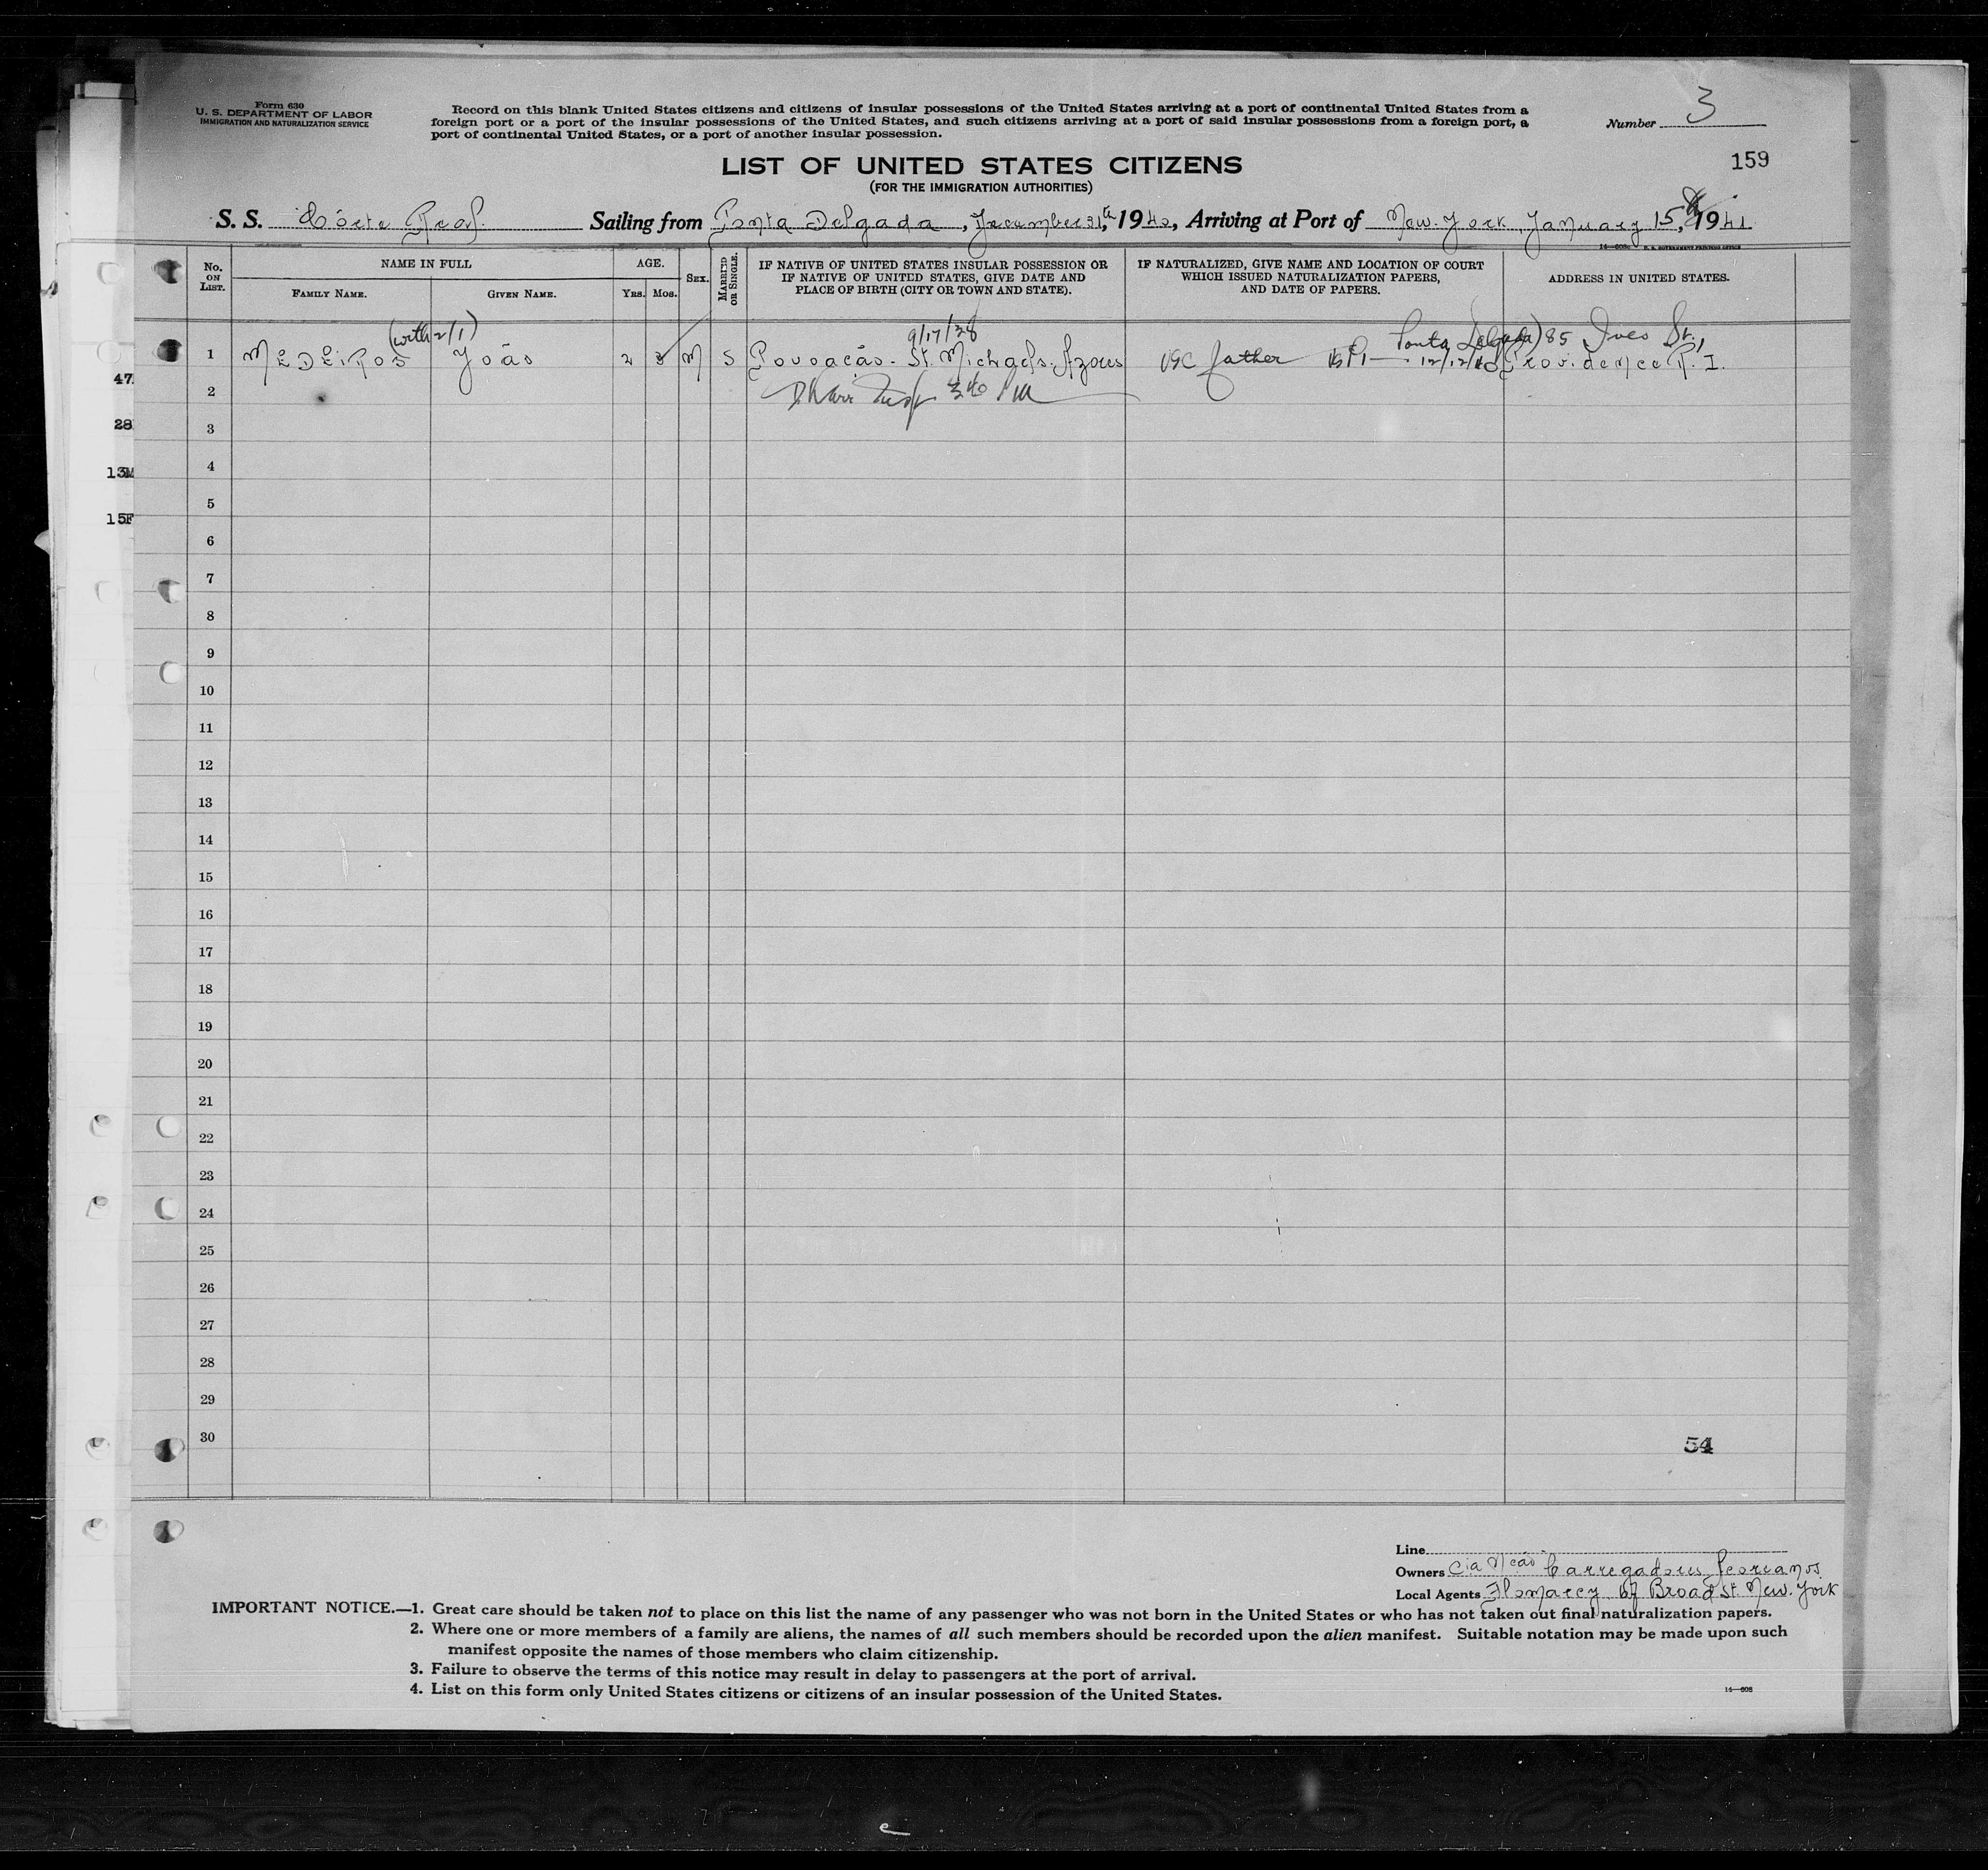 Form 630
U. S. DEPARTMENT OF LABOR
IMMIGRATION AND NATURALIZATION SERVICE
Record on this blank United States citizens and citizens of insular possessions of the United States arriving at a port of continental United States from a
foreign port or a port of the insular possessions of the United States, and such citizens arriving at a port of said insular possessions from a foreign port, a
port of continental United States, or a port of another insular possession.
Number 3
159
LIST OF UNITED STATES CITIZENS
(FOR THE IMMIGRATION AUTHORITIES)
S. S. Côrte Real Sailing from Ponta Delgada, December 31th, 1940, Arriving at Port of New York, January 15, 1941
No. ON LIST.
NAME IN FULL
FAMILY NAME.
GIVEN NAME.
AGE.
YRS.
MOS.
SEX.
MARRIED OR SINGLE.
IF NATIVE OF UNITED STATES INSULAR POSSESSION OR
IF NATIVE OF UNITED STATES, GIVE DATE AND
PLACE OF BIRTH (CITY OR TOWN AND STATE).
IF NATURALIZED, GIVE NAME AND LOCATION OF COURT
WHICH ISSUED NATURALIZATION PAPERS,
AND DATE OF PAPERS.
ADDRESS IN UNITED STATES.
(with 2/1) 9/17/38 Ponta Delgada) 85 Ives St.,
1 MEDEIROS João 2 3 M S Povoacão - St. Michaels. Azores USC father 12/12/40 Providence R. I.
2
3
4
5
6
7
8
9
10
11
12
13
14
15
16
17
18
19
20
21
22
23
24
25
26
27
28
29
30
47
28
13M
15F
54
Line
Owners Cia Ncão Carregadores Açorianos
Local Agents Broad St. New York
IMPORTANT NOTICE.—1. Great care should be taken not to place on this list the name of any passenger who was not born in the United States or who has not taken out final naturalization papers.
2. Where one or more members of a family are aliens, the names of all such members should be recorded upon the alien manifest. Suitable notation may be made upon such
manifest opposite the names of those members who claim citizenship.
3. Failure to observe the terms of this notice may result in delay to passengers at the port of arrival.
4. List on this form only United States citizens or citizens of an insular possession of the United States.
14—608